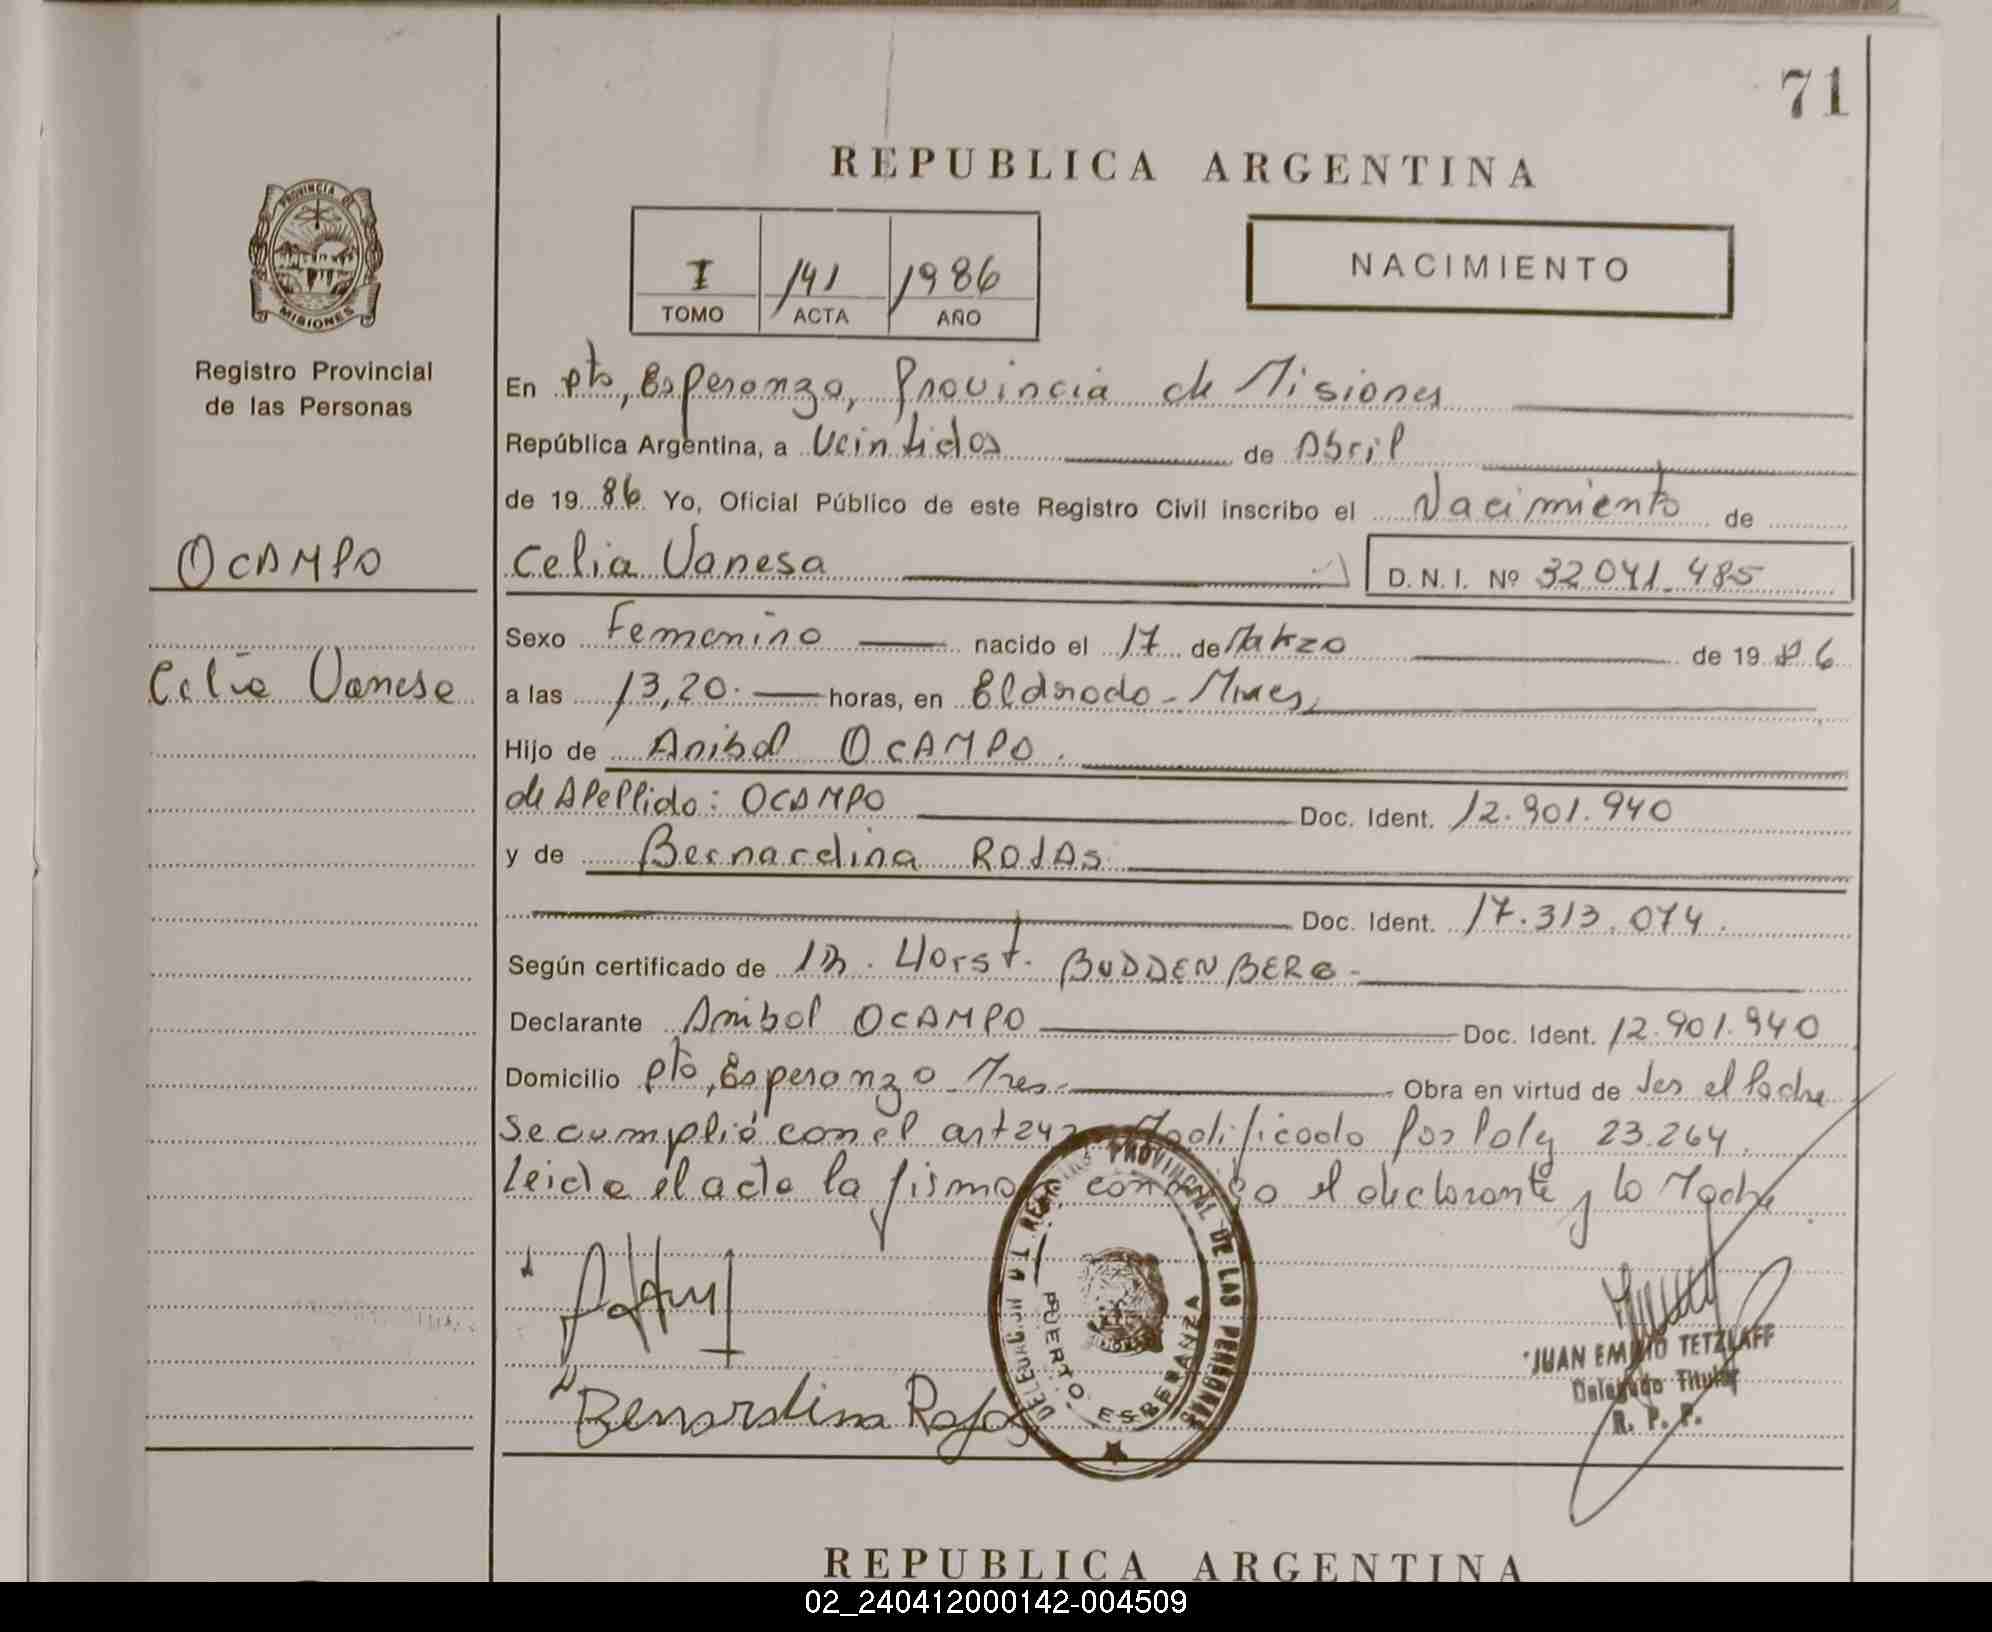 71
REPUBLICA ARGENTINA
PROVINCIA DE
MISIONES
Registro Provincial
de las Personas
I 141 1986
TOMO ACTA AÑO
NACIMIENTO
En pto, Esperanza, Provincia de Misiones
República Argentina, a veintidos de Abril
de 1986 Yo, Oficial Público de este Registro Civil inscribo el Nacimiento de
OCAMPO
Celia Vanesa D.N.I. Nº 32041.485
Sexo Femenino nacido el 17 de Marzo de 1986
Celia Vanesa
a las 13,20 horas, en Eldorado - Mnes,
Hijo de Anibal OCAMPO.
de Apellido: OCAMPO Doc. Ident. 12.901.940
y de Bernardina ROJAS
Doc. Ident. 17.313.074.
Según certificado de Dr. Horst. BUDDENBERG -
Declarante Anibal OCAMPO Doc. Ident. 12.901.940
Domicilio pto, Esperanza Mnes. Obra en virtud de ser el Padre
Se cumplió con el art 242 Modificado por la ley 23.264.
Leida el acta la firma el declarante y la Madre
Bernardina Rojas
DELEGACION REGISTRO PROVINCIAL DE LAS PERSONAS
PUERTO ESPERANZA
JUAN EMILIO TETZLAFF
Delegado Titular
R. P. P.
REPUBLICA ARGENTINA
02_240412000142-004509